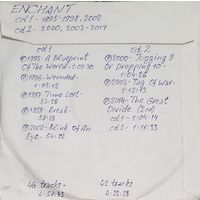 ENCHANT
cd1 - 1995-1998, 2002
cd2 - 2000, 2003-2014
cd1
1995-A Blueprint
Of The World - 1:07:30
1996-Wounded-
1:03:42
1997-Time Lost-
57:28
1998-Break-
58:28
2002-Blink Of An
Eye - 54:42
46 tracks -
4:57:53
cd2
2000-Jugging 9
Or Dropping 10-
1:04:26
2003-Tug Of War-
1:12:13
2014-The Great
Divide (2cd)
cd1 - 1:04:14
cd2 - 1:11:33
42 tracks
4:32:28